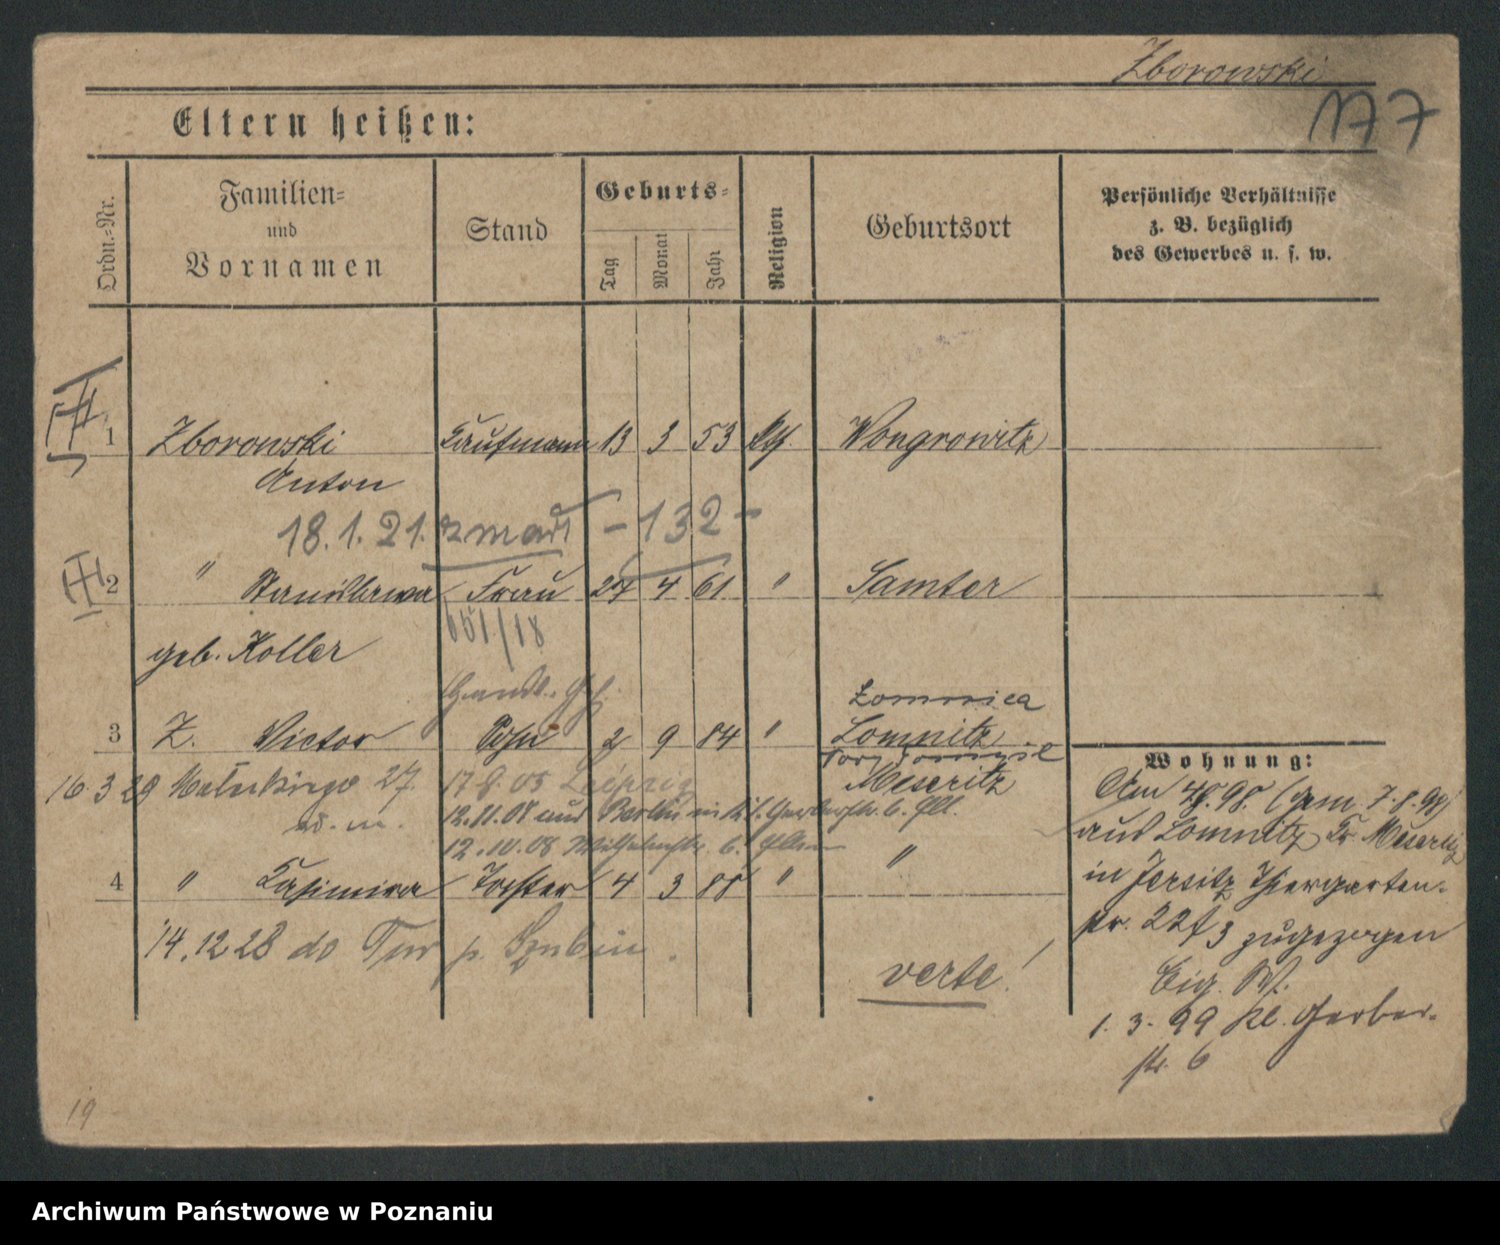 Zborowski
177
Eltern heißen:
Ordn.-Nr.
Familien-
und
Vornamen
Stand
Geburts-
Tag
Monat
Jahr
Religion
Geburtsort
Persönliche Verhältnisse
z. B. bezüglich
des Gewerbes u. s. w.
1 Zborowski Kaufmann 13 3 53 kth. Wongrowitz
Anton
18.1.21. zmarł - 132 -
2 " Stanislawa Frau 27 4 61 " Samter
geb. Koller
651/18
Handl. Gh.
Łomnica
3 Z. Victor Sohn 2 9 84 " Lomnitz
Meseritz
16.3.29 27. 17.8.05 Leipzig
ad. m. 12.11.08 aus Berlin in Kl. Gerberstr. 6.
12.10.08 6.
4 " Kasimira Tochter 4 3 88 " "
14.12.28 do Tur p. Szubin.
verte!
Wohnung:
Am 4.8.98. (gem. 7.8.98)
aus Lomnitz Kr. Meseritz
in Jersitz Thiergarten-
str. 22 3 zugezogen
Eig. W.
1. 3. 99 Kl. Gerber-
str. 6
19
Archiwum Państwowe w Poznaniu